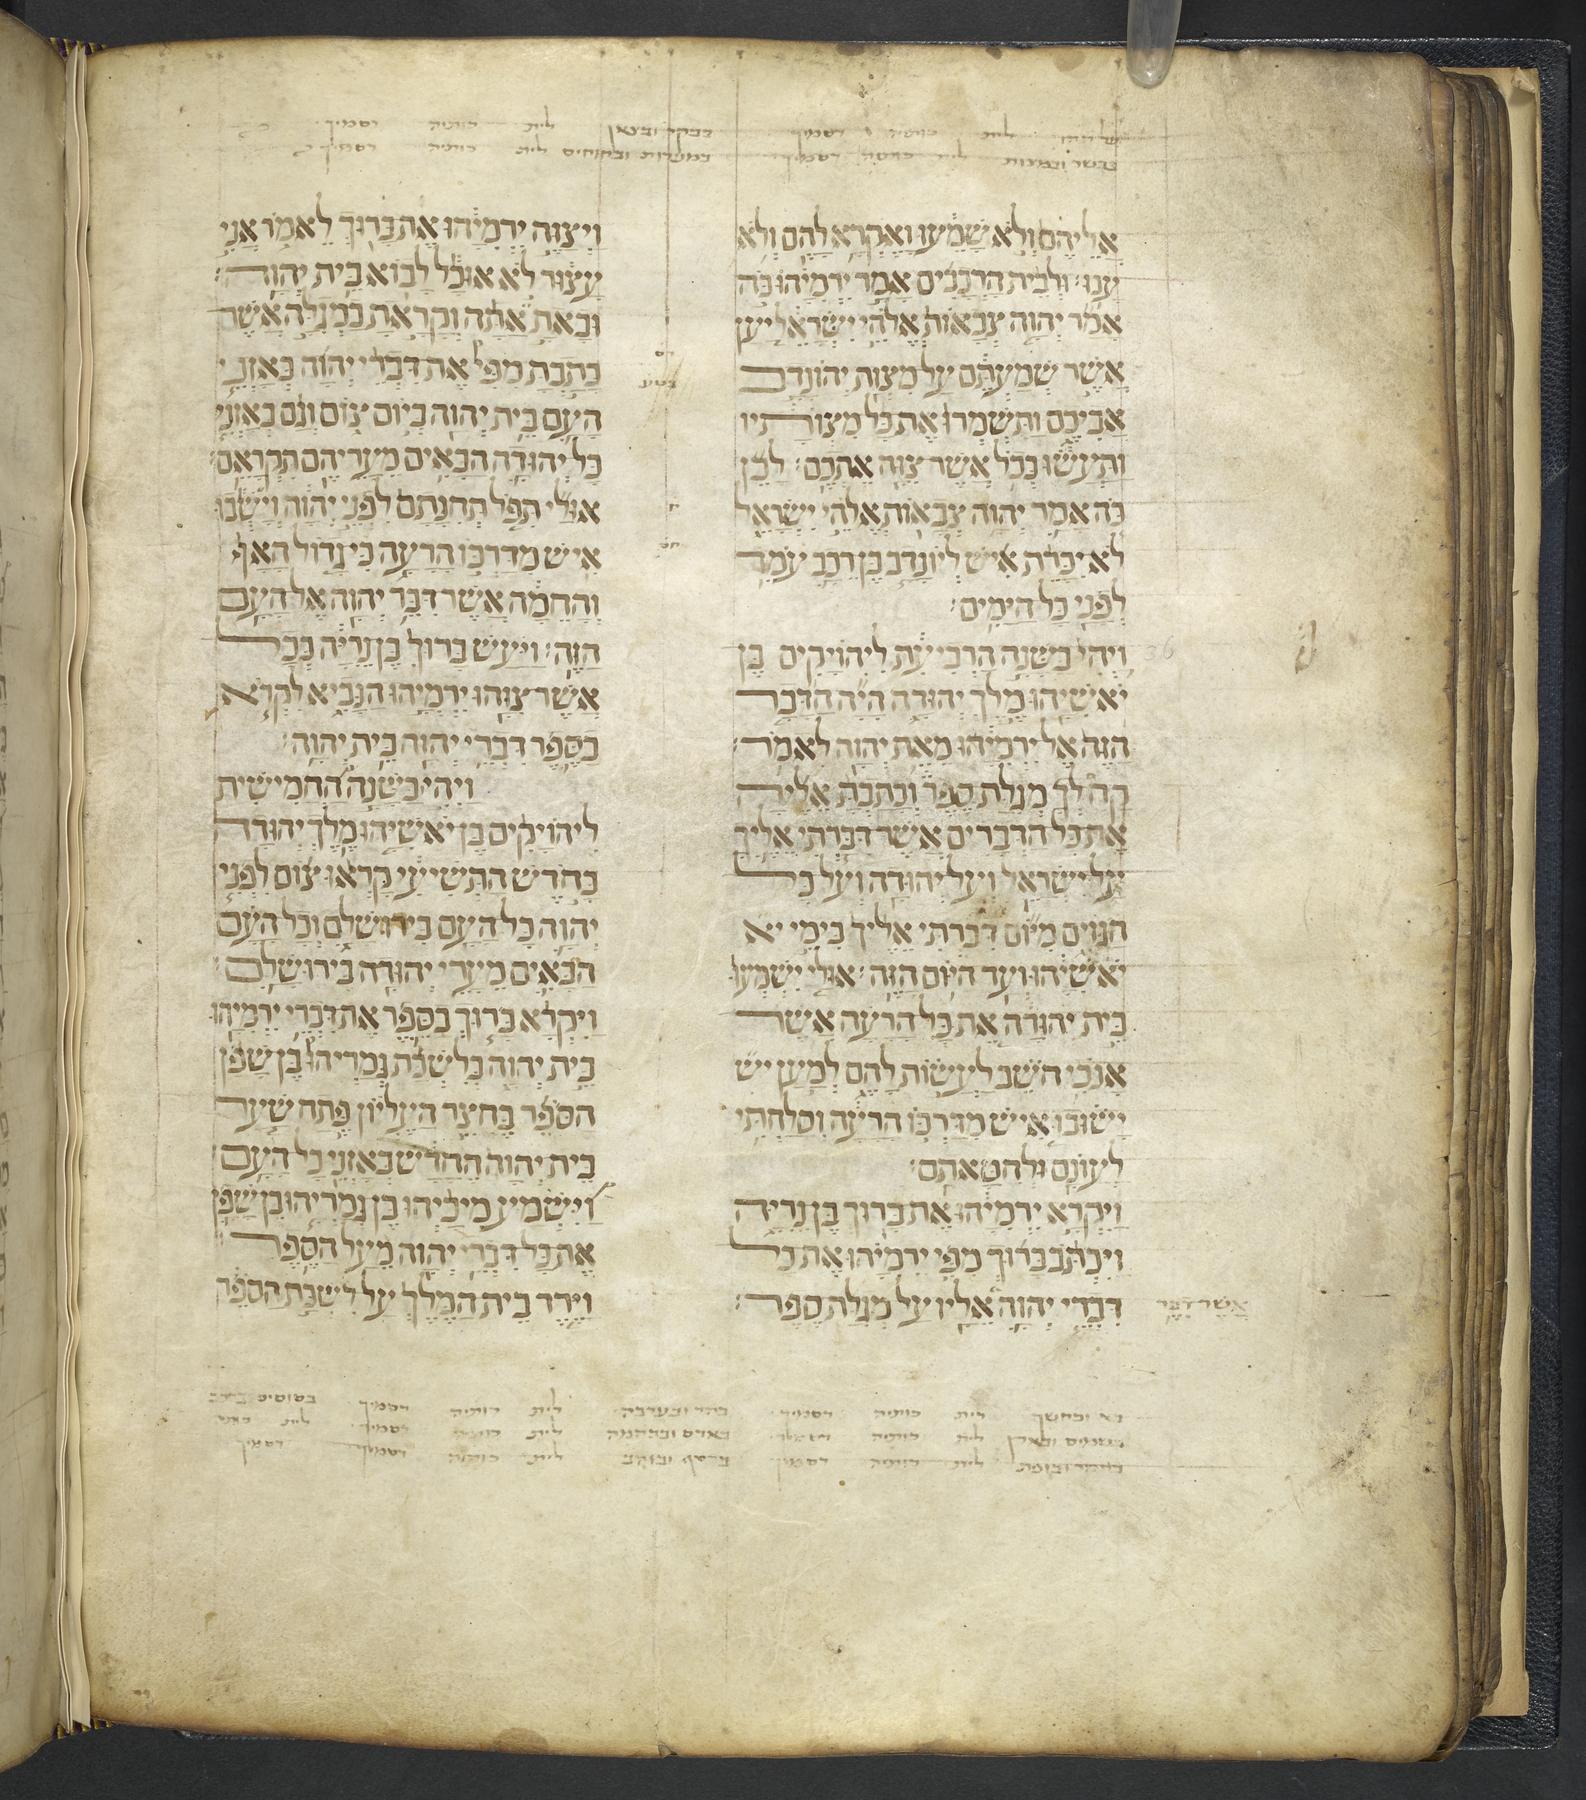 אליהם ולא שמעו ואקרא להם ולא
ענו׃ ולבית הרכבים אמר ירמיהו כה
אמר יהוה צבאות אלהי ישראל יען
אשר שמעתם על מצות יהונדב
אביכם ותשמרו את כל מצותיו
ותעשו ככל אשר צוה אתכם׃ לכן
כה אמר יהוה צבאות אלהי ישראל
לא יכרת איש ליונדב בן רכב עמד
לפני כל הימים׃
ויהי בשנה הרביעת ליהויקים בן
36
יאשיהו מלך יהודה היה הדבר
הזה אל ירמיהו מאת יהוה לאמר׃
קח לך מגלת ספר וכתבת אליה
את כל הדברים אשר דברתי אליך
על ישראל ועל יהודה ועל כל
הגוים מיום דברתי אליך בימי יא
יאשיהו ועד היום הזה׃ אולי ישמעו
בית יהודה את כל הרעה אשר
אנכי חשב לעשות להם למען יש
ישובו איש מדרכו הרעה וסלחתי
לעונם ולחטאתם׃
ויקרא ירמיהו את ברוך בן נריה
ויכתב ברוך מפי ירמיהו את כל
דברי יהוה אליו על מגלת ספר׃
אשר דבר
ויצוה ירמיהו את ברוך לאמר אני
עצור לא אוכל לבוא בית יהוה׃
ובאת אתה וקראת במגלה אשר
כתבת מפי את דברי יהוה באזני
העם בית יהוה ביום צום וגם באזני
כל יהודה הבאים מעריהם תקראם׃
אולי תפל תחנתם לפני יהוה וישבו
איש מדרכו הרעה כי גדול האף
והחמה אשר דבר יהוה אל העם
הזה׃ ויעש ברוך בן נריה ככל
אשר צוהו ירמיהו הנביא לקרא
בספר דברי יהוה בית יהוה׃
ויהי בשנה החמישית
ליהויקים בן יאשיהו מלך יהודה
בחדש התשיעי קראו צום לפני
יהוה כל העם בירושלם וכל העם
הבאים מערי יהודה בירושלם׃
ויקרא ברוך בספר את דברי ירמיהו
בית יהוה בלשכת גמריהו בן שפן
הספר בחצר העליון פתח שער
בית יהוה החדש באזני כל העם׃
וישמע מיכיהו בן גמריהו בן שפן
את כל דברי יהוה מעל הספר׃
וירד בית המלך על לשכת הספר